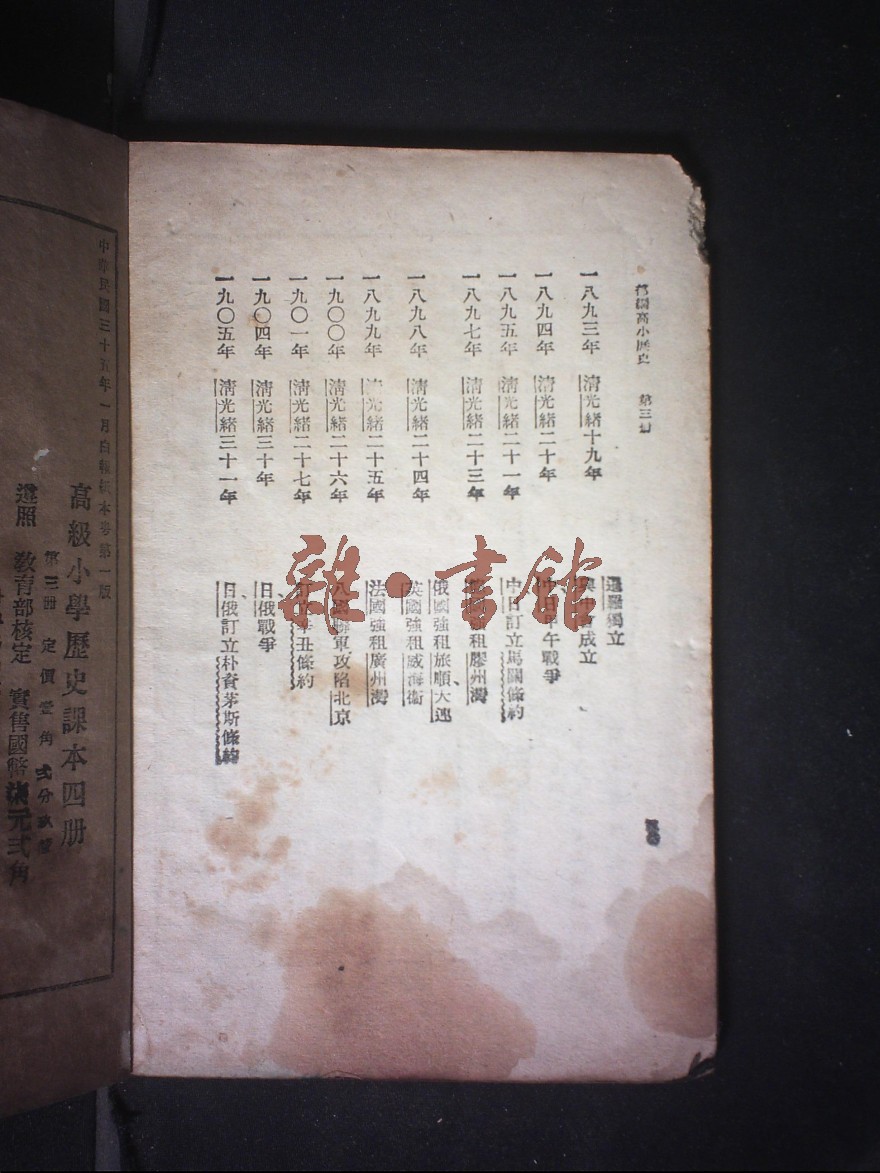 高小歷史 第三
暹羅獨立
一八九三年 清光緒十九年
興中會成立
一八九四年 清光緒二十年
中日甲午戰爭
一八九五年 清光緒二十一年
中日訂立馬關條約
一八九七年 清光緒二十三年
強租膠州灣
俄國強租旅順、大連
一八九八年 清光緒二十四年
英國強租威海衞
一八九九年 清光緒二十五年
法國強租廣州灣
一九〇〇年 清光緒二十六年
八國聯軍攻陷北京
一九〇一年 清光緒二十七年
訂立辛丑條約
一九〇四年 清光緒三十年
日、俄戰爭
一九〇五年 清光緒三十一年
日、俄訂立朴資茅斯條約
雜·書館
中華民國三十五年一月白報紙本第一版
高級小學歷史課本四册
第三册 定價壹角
遵照 教育部核定 實售國幣 元弍角